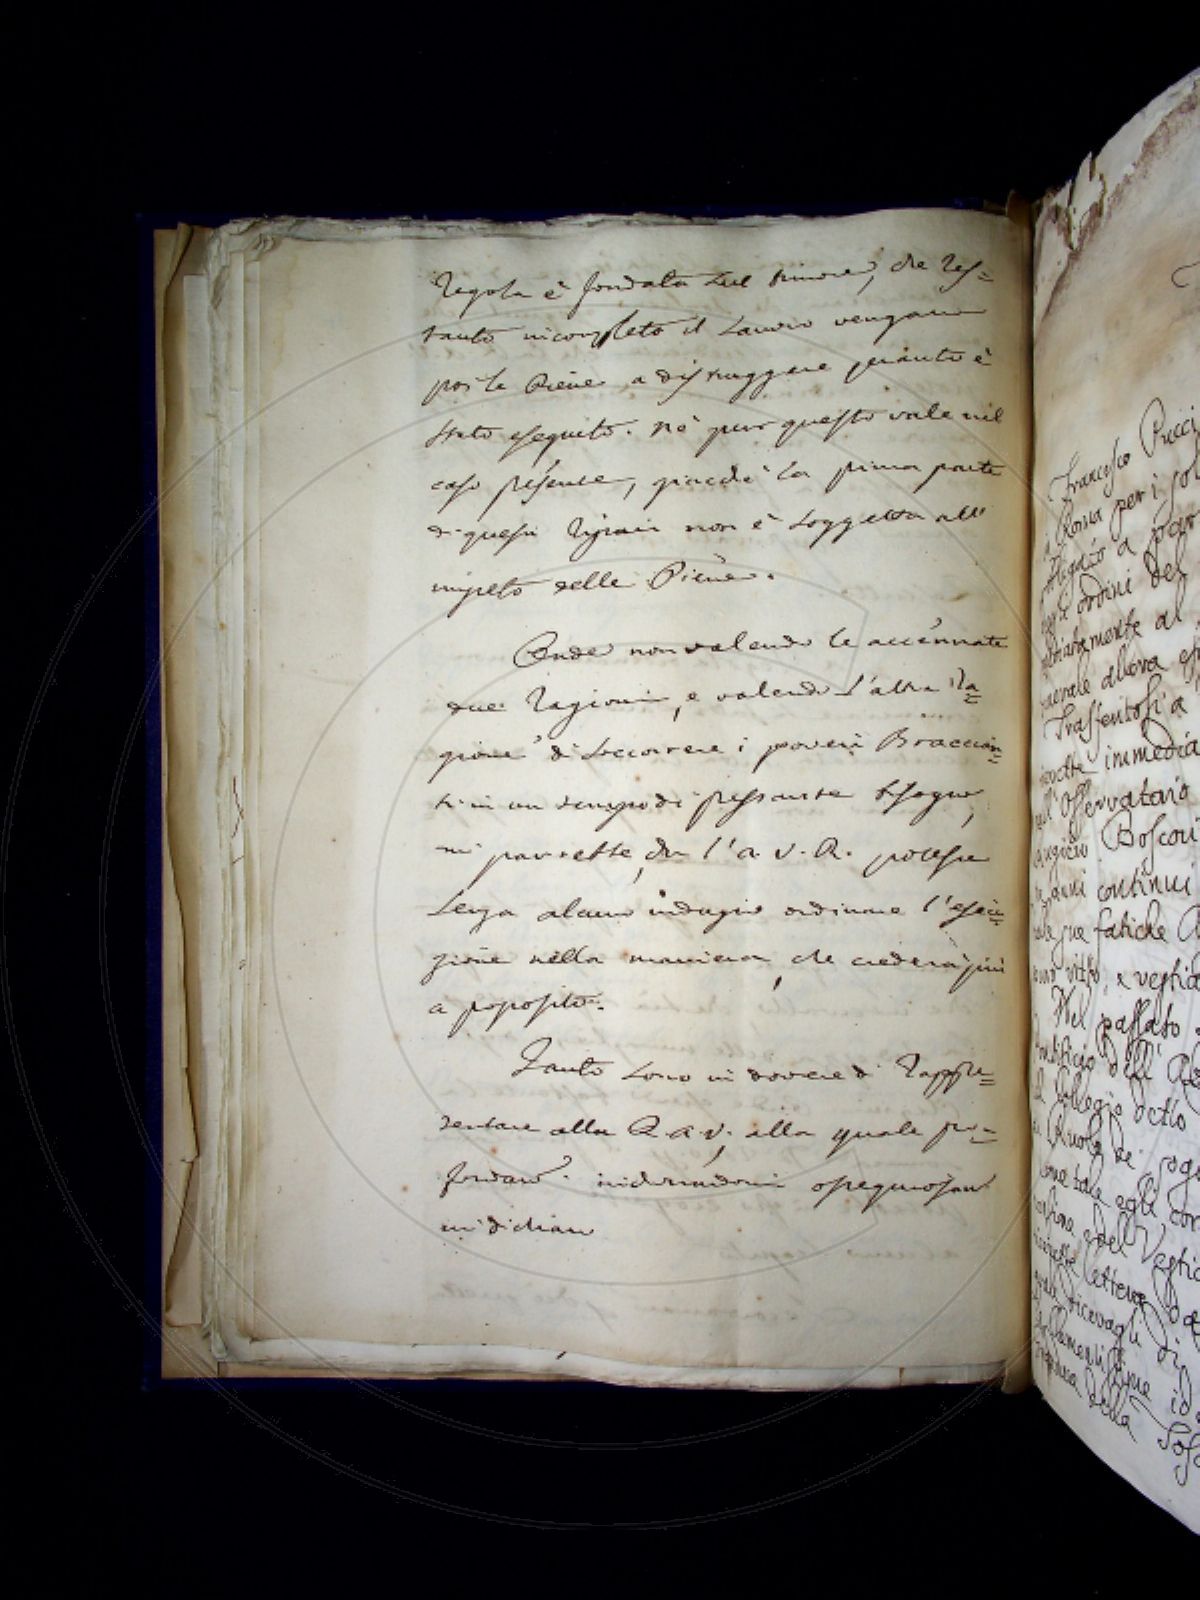 Regola è fondata sul timore, che res=
tanto incompleto il Lavoro vengano
poi le Piene a distruggere quanto è
stato eseguito. Nè pur questo vale nel
caso presente, giacchè la prima parte
di questi Ripari non è soggetta all'
impeto delle Piene.
Onde non valendo le accennate
due Ragioni, e valendo l'altra Ra=
gione di soccorrere i poveri Braccian=
ti in un tempo di pressante bisogno,
mi parrebbe, che l'A. V. R. potesse
senza alcun indugio ordinare l'esecu=
zione nella maniera, che crederà più
a proposito.
Tanto sono in dovere di Rappre=
sentare alla R. A. V., alla quale pro=
fondam. inchinandomi ossequiosam
mi dichiaro
Francesco Pucci
a Roma per i
a par
ordini del
al
allora
Trasferitosi a
immedia
all'Osservatorio
Boscovi
anni continui
sue fatiche
vitto, e vestia
Nel passato
Pontificio dell'
Collegio detto
de'
come tale egli
del Vestia
lettera
ricevagli di
della